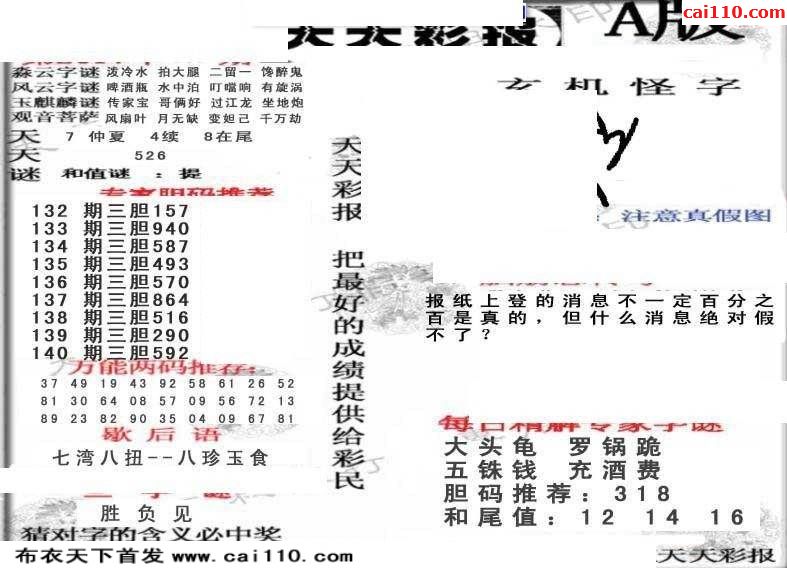 cai110.com
天天彩报 A版
森云字谜 泼冷水 拍大腿 二留一 馋醉鬼
风云字谜 啤酒瓶 水中泊 叮噹响 有旋涡
玉麒麟谜 传家宝 哥俩好 过江龙 坐地炮
观音菩萨 风扇叶 月无缺 变妲己 千万劫
天 7 仲夏 4续 8在尾
天 526
谜 和值谜 : 提
专家胆码推荐
132 期三胆157
133 期三胆940
134 期三胆587
135 期三胆493
136 期三胆570
137 期三胆864
138 期三胆516
139 期三胆290
140 期三胆592
万能两码推荐:
37 49 19 43 92 58 61 26 52
81 30 64 08 57 09 56 72 13
89 23 82 90 35 04 09 67 81
歇后语
七湾八扭--八珍玉食
三字谜
胜负见
猜对字的含义必中奖
布衣天下首发 www.cai110.com
天天彩报 把最好的成绩提供给彩民
玄机怪字
: 注意真假图
报纸上登的消息不一定百分之
百是真的，但什么消息绝对假
不了？
每日精解专家字谜
大头龟 罗锅跪
五铢钱 充酒费
胆码推荐: 318
和尾值: 12 14 16
天天彩报